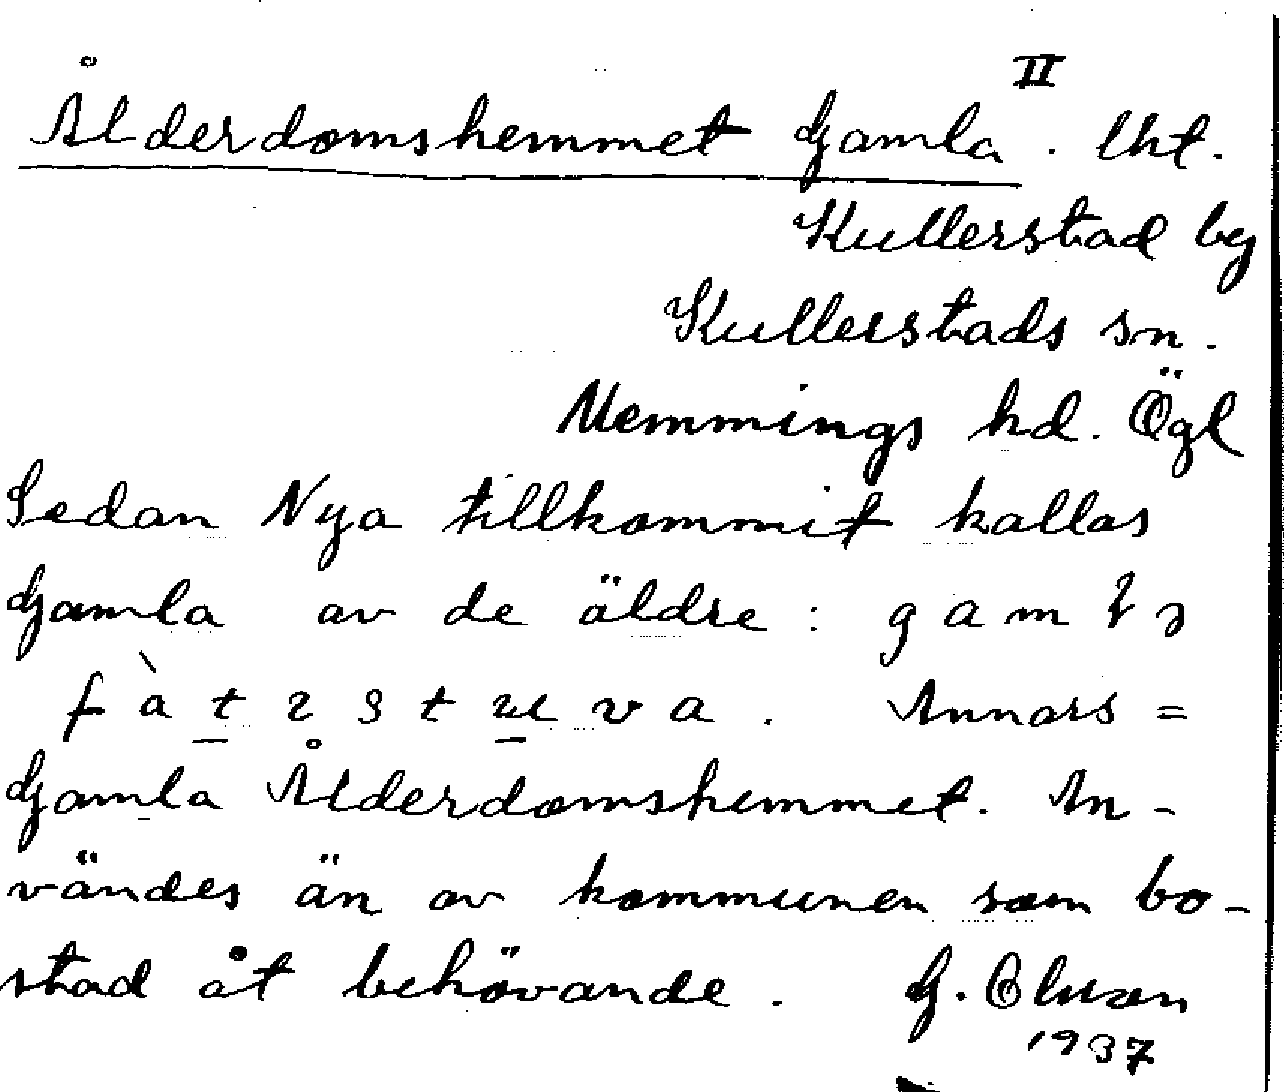 II
Ålderdomshemmet Gamla. lht.
Kullerstad by
Kullerstads sn.
Memmings hd. Ögl
Sedan Nya tillkommit kallas
Gamla av de äldre: gam
Annars=
Gamla Ålderdomshemmet. An-
vändes än av kommunen som bo-
stad åt behövande. G.
1937